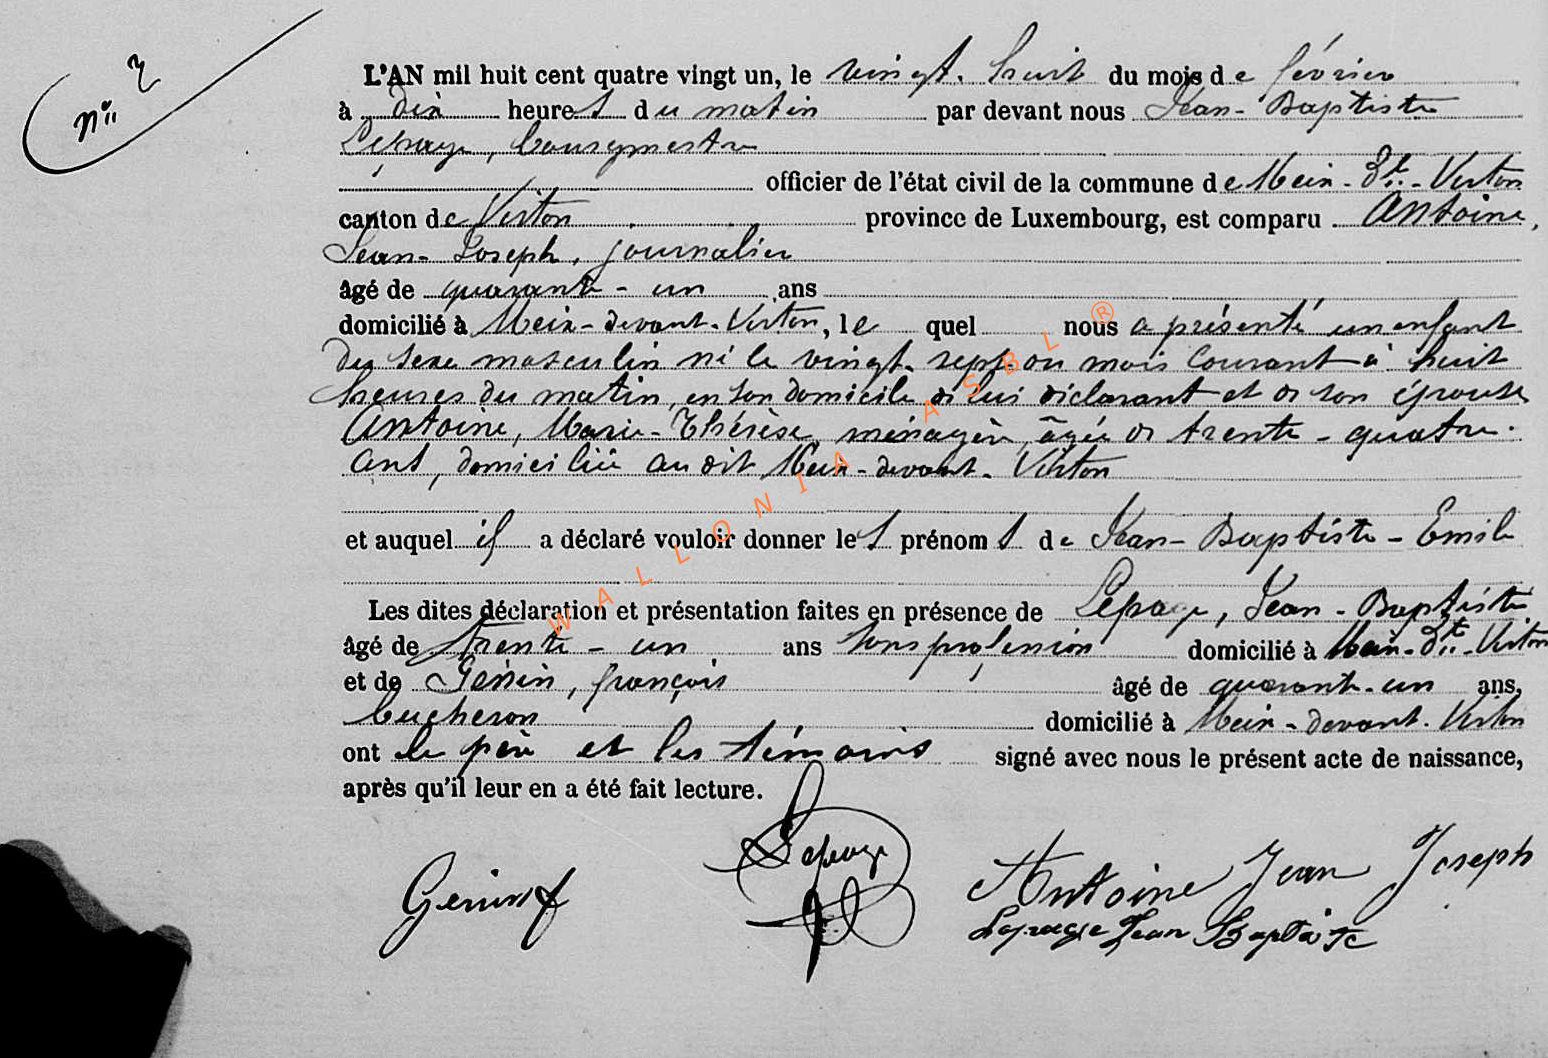 nº 2
L'AN mil huit cent quatre vingt un, le vingt-huit du mois de février
à dix heures du matin par devant nous Jean-Baptiste
Lepage, bourgmestre
officier de l'état civil de la commune de Meix-dt-Virton
canton de Virton province de Luxembourg, est comparu Antoine,
Jean-Joseph, journalier
âgé de quarante-un ans
domicilié à Meix-devant-Virton, le quel nous a présenté un enfant
du sexe masculin né le vingt-sept du mois courant à huit
heures du matin, en son domicile de lui déclarant et de son épouse
Antoine, Marie-Thérèse, ménagère, âgée de trente-quatre
ans, domiciliée au dit Meix-devant-Virton
et auquel il a déclaré vouloir donner les prénoms de Jean-Baptiste-Emile
Les dites déclaration et présentation faites en présence de Lepage, Jean-Baptiste
âgé de trente-un ans sans profession domicilié à Meix-dt-Virton
et de Génin, françois âgé de quarante-un ans,
bucheron domicilié à Meix-devant-Virton
ont le père et les témoins signé avec nous le présent acte de naissance,
après qu'il leur en a été fait lecture.
Genin f Lepage Antoine Jean Joseph
Lepage Jean Baptiste
WALLONIA ASBL ®